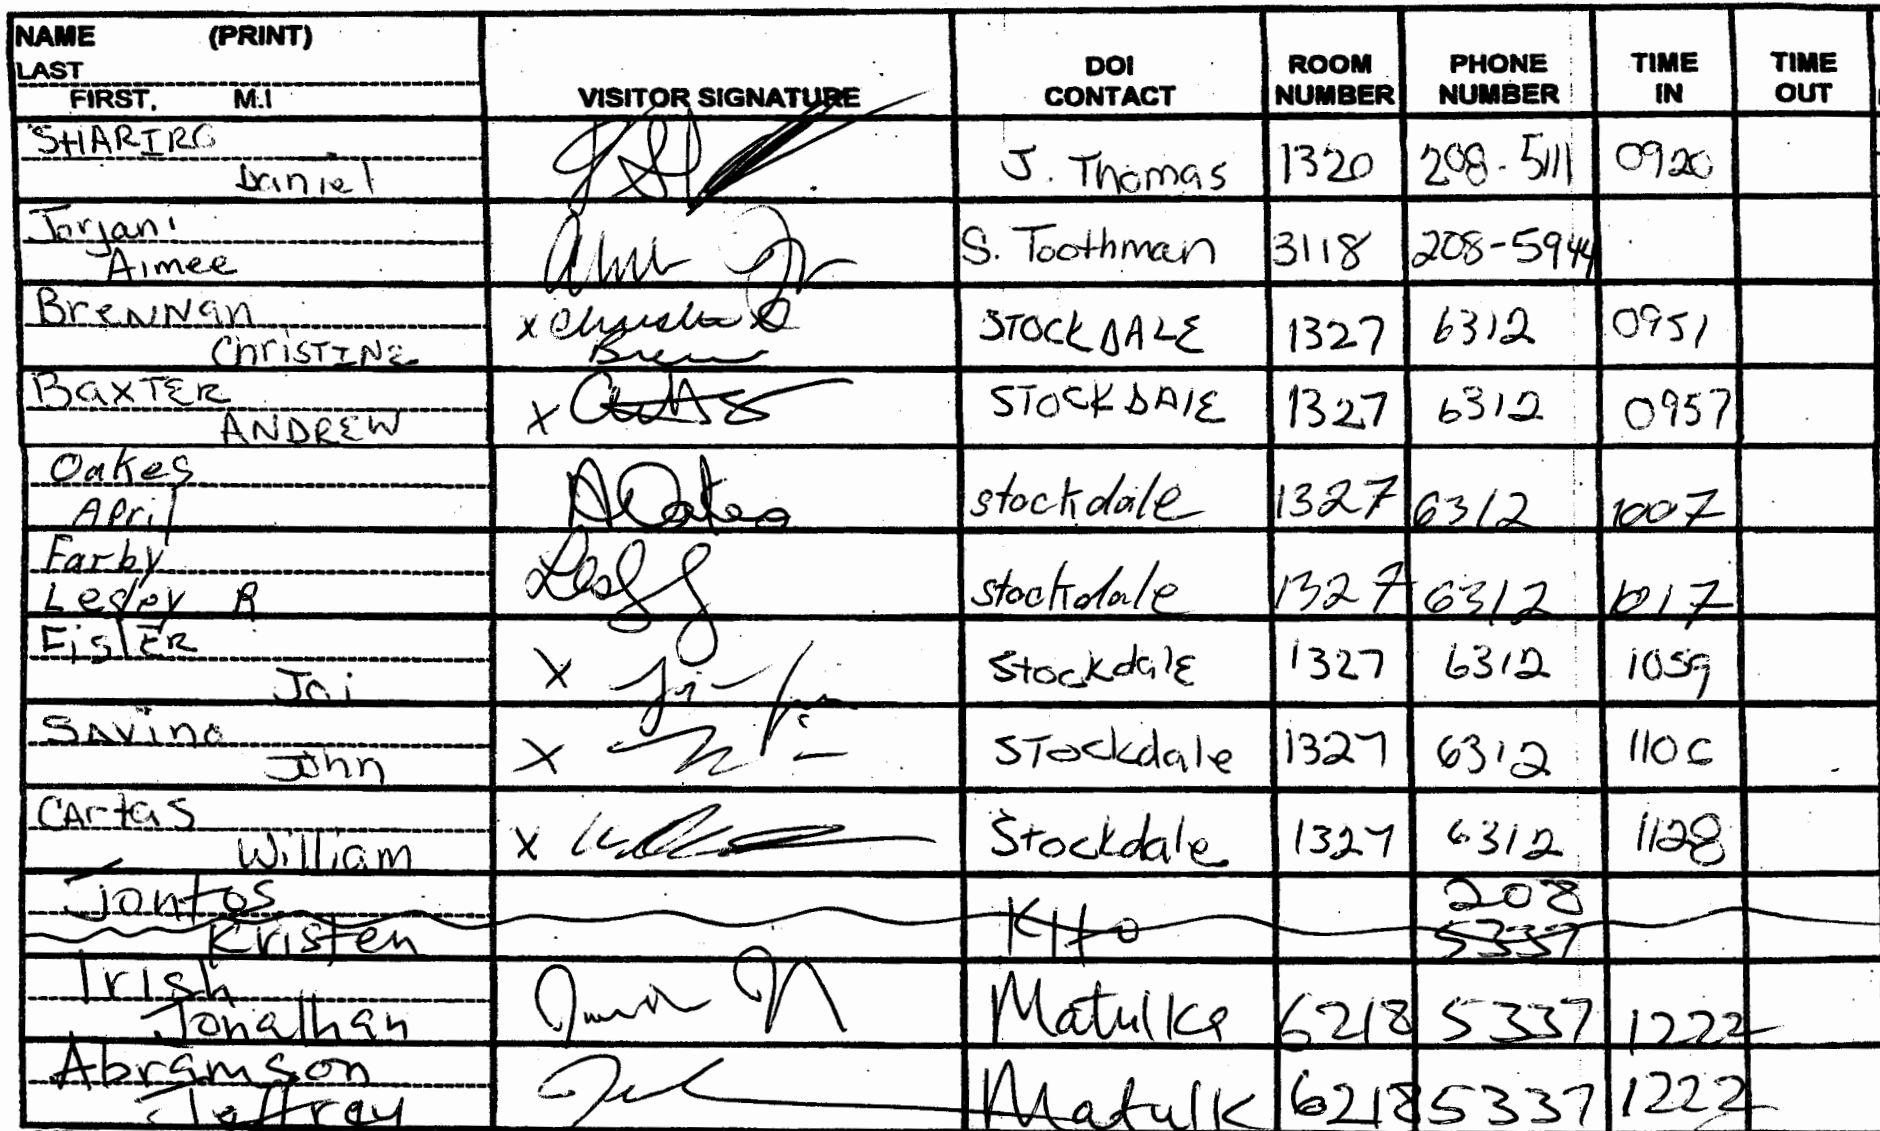 NAME (PRINT)
LAST
FIRST, M.I
VISITOR SIGNATURE
DOI CONTACT
ROOM NUMBER
PHONE NUMBER
TIME IN
TIME OUT
SHARIRO
Daniel J. Thomas 1320 208-5111 0920
Jorjani
Aimee S. Toothman 3118 208-5944
Brennan
Christine x STOCKDALE 1327 6312 0951
Baxter
ANDREW x STOCKDALE 1327 6312 0957
Oakes
April AOakes stockdale 1327 6312 1007
Farby
Lesley R stockdale 1327 6312 1017
Eisler
Joi X Stockdale 1327 6312 1059
Savino
John X Stockdale 1327 6312
Cartas
William x Stockdale 1327 6312 1128
Jontos 208
Kristen 5337
Irish
Jonathan Matulka 6218 5337 1222
Abramson
Jeffrey Matulk 6218 5337 1222